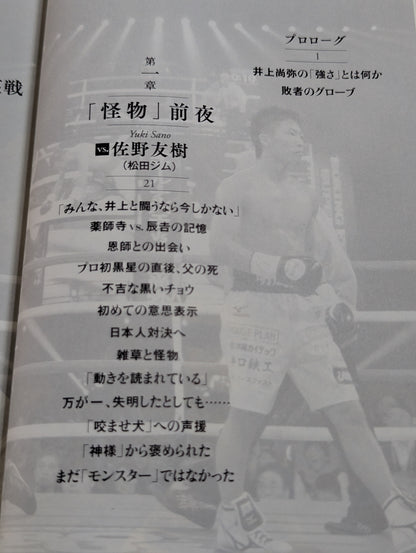 プロローグ
1
井上尚弥の「強さ」とは何か
敗者のグローブ
第一章
「怪物」前夜
Yuki Sano
vs.佐野友樹
(松田ジム)
21
「みんな、井上と闘うなら今しかない」
薬師寺vs.辰吉の記憶
恩師との出会い
プロ初黒星の直後、父の死
不吉な黒いチョウ
初めての意思表示
日本人対決へ
雑草と怪物
「動きを読まれている」
万が一、失明したとしても……
「咬ませ犬」への声援
「神様」から褒められた
まだ「モンスター」ではなかった
戦